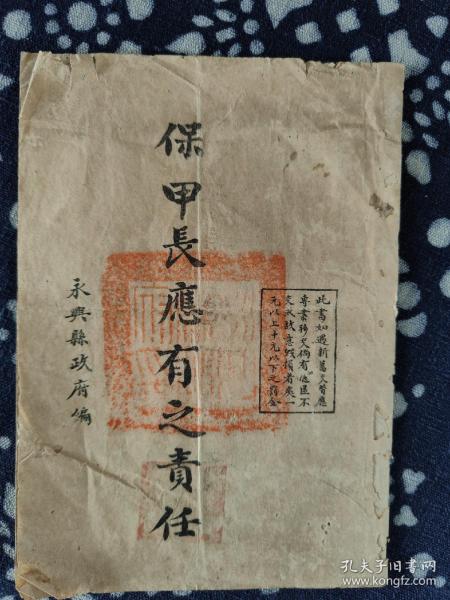 保甲長應有之責任
永興縣政府編
此書如遇新舊交替應
專案移交倘有隱匿不
交或故意毀損者處一
元以上十元以下之罰金
孔夫子旧书网
www.kongfz.com